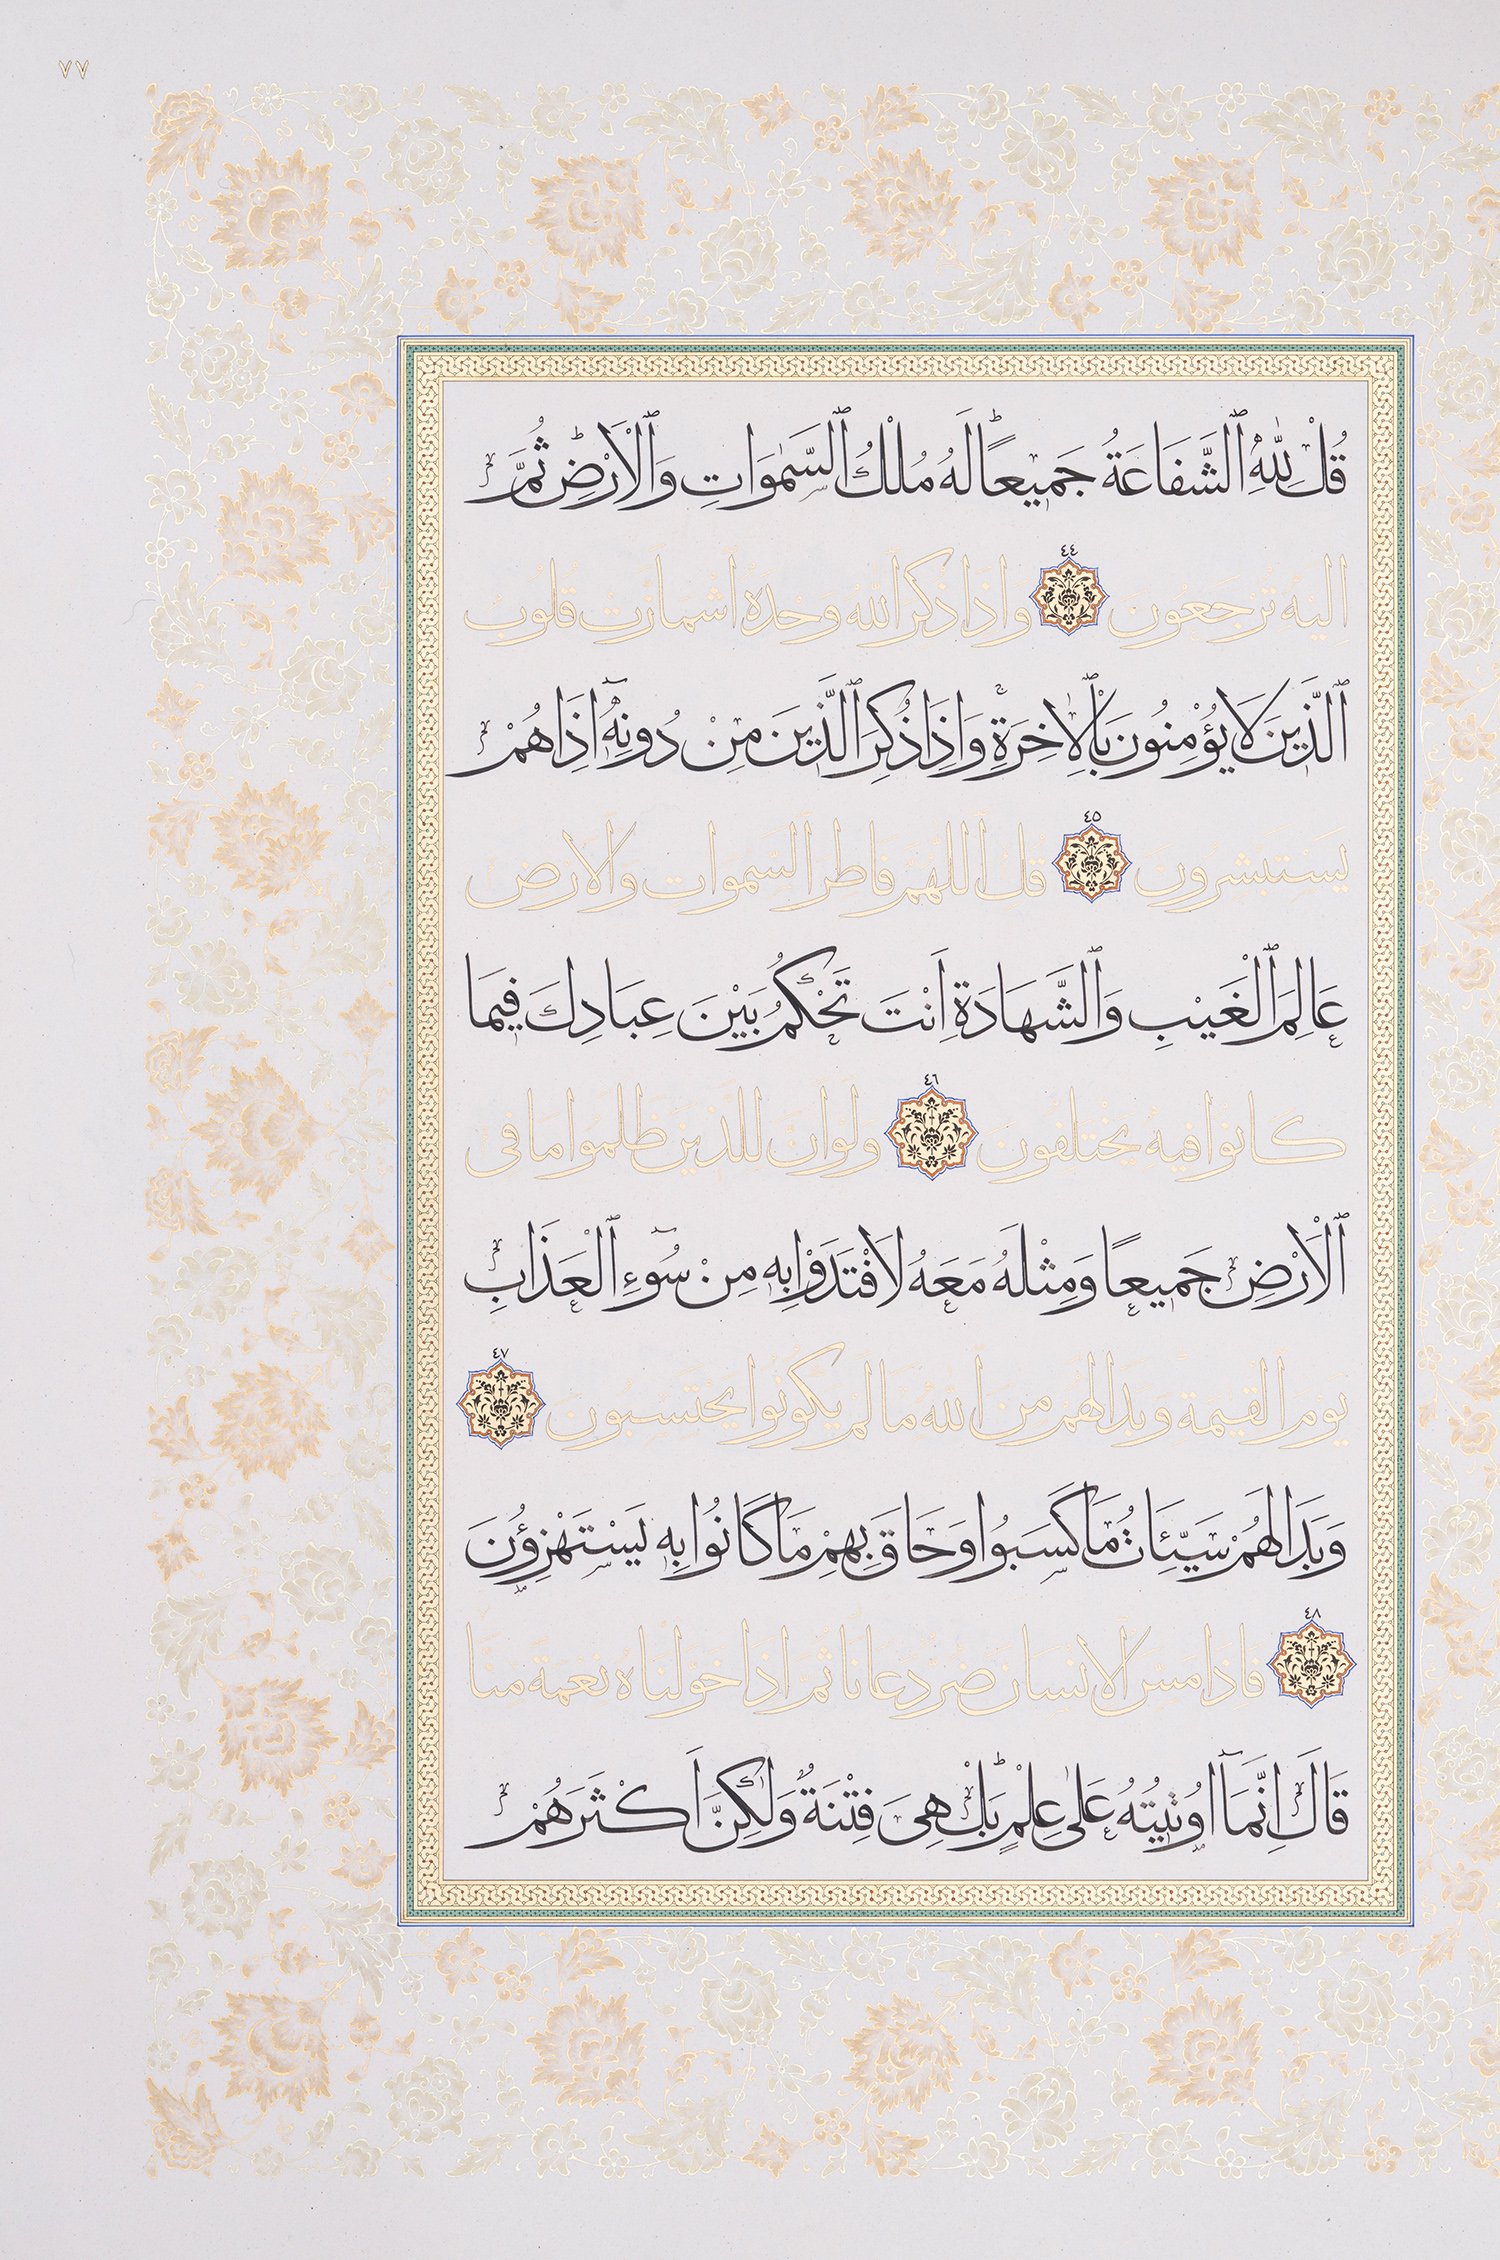 ٧٧
قُلْ لِلّٰهِ ٱلشَّفَاعَةُ جَمٖيعًاۜ لَهُ مُلْكُ ٱلسَّمٰوَاتِ وَٱلْاَرْضِۜ ثُمَّ
اليه ترجعون ٤٤ واذا ذكر الله وحده اشمازت قلوب
ٱلَّذٖينَ لَا يُؤْمِنُونَ بِٱلْاٰخِرَةِۚ وَاِذَا ذُكِرَ ٱلَّذٖينَ مِنْ دُونِهٖٓ اِذَا هُمْ
يستبشرون ٤٥ قل اللهم فاطر السموات والارض
عَالِمَ ٱلْغَيْبِ وَٱلشَّهَادَةِ اَنْتَ تَحْكُمُ بَيْنَ عِبَادِكَ فٖيمَا
كانوا فيه يختلفون ٤٦ ولو ان للذين ظلموا ما فى
ٱلْاَرْضِ جَمٖيعًا وَمِثْلَهُ مَعَهُ لَافْتَدَوْا بِهٖ مِنْ سُوٓءِ ٱلْعَذَابِ
يوم القيمة وبدا لهم من الله ما لم يكونوا يحتسبون ٤٧
وَبَدَا لَهُمْ سَيِّئَاتُ مَا كَسَبُوا وَحَاقَ بِهِمْ مَا كَانُوا بِهٖ يَسْتَهْزِؤُنَ
٤٨ فاذا مس الانسان ضر دعانا ثم اذا خولناه نعمة منا
قَالَ اِنَّمَٓا اُو۫تٖيتُهُ عَلٰى عِلْمٍۜ بَلْ هِىَ فِتْنَةٌ وَلٰكِنَّ اَكْثَرَهُمْ